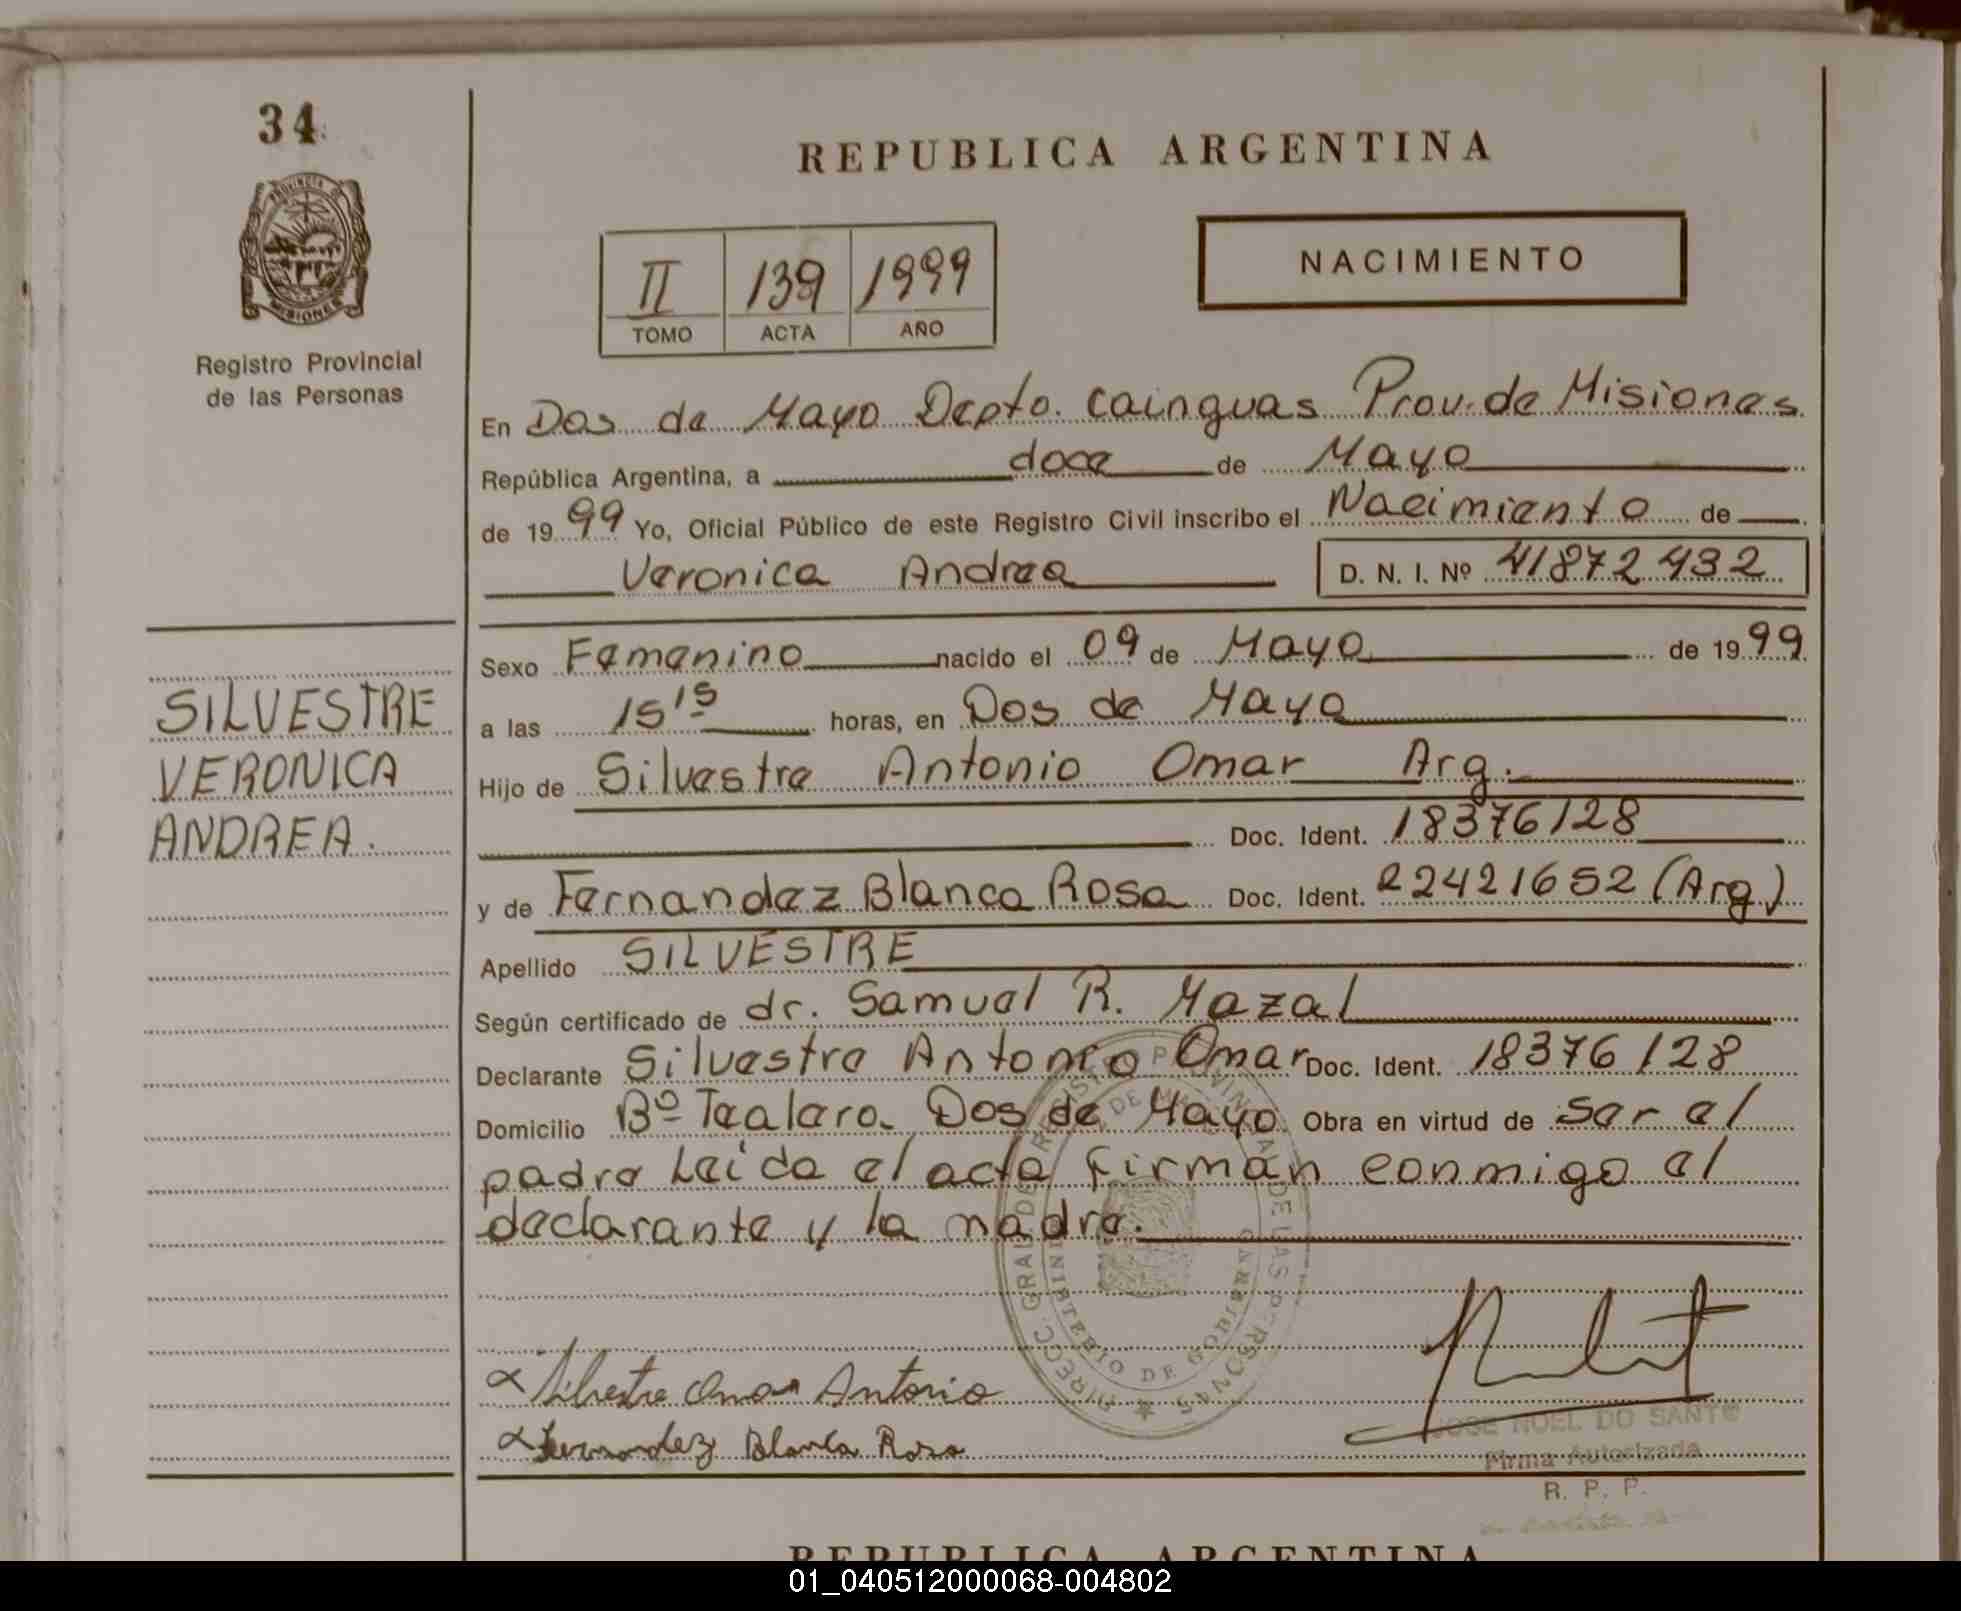 34
PROVINCIA DE
MISIONES
Registro Provincial
de las Personas
REPUBLICA ARGENTINA
II 139 1999
TOMO ACTA AÑO
NACIMIENTO
En Dos de Mayo Depto. Cainguas Prov. de Misiones
República Argentina, a doce de Mayo
de 1999 Yo, Oficial Público de este Registro Civil inscribo el Nacimiento de
Veronica Andrea D. N. I. Nº 41872432
SILVESTRE
VERONICA
ANDREA.
Sexo Femenino nacido el 09 de Mayo de 1999
a las 15 15 horas, en Dos de Mayo
Hijo de Silvestre Antonio Omar Arg.
Doc. Ident. 18376128
y de Fernandez Blanca Rosa Doc. Ident. 22421652 (Arg)
Apellido SILVESTRE
Según certificado de dr. Samuel R. Mazal
Declarante Silvestre Antonio Omar Doc. Ident. 18376128
Domicilio Bº Tealero. Dos de Mayo Obra en virtud de ser el
padre Leida el acta firman conmigo el
declarante y la madre.
DIRECC. GRAL DE REGISTRO PROVINCIAL DE LAS PERSONAS
MINISTERIO DE GOBIERNO
Silvestre Omar Antonio
Fernandez Blanca Rosa
JOSE NOEL DO SANTO
Firma Autorizada
R. P. P.
REPUBLICA ARGENTINA
01_040512000068-004802